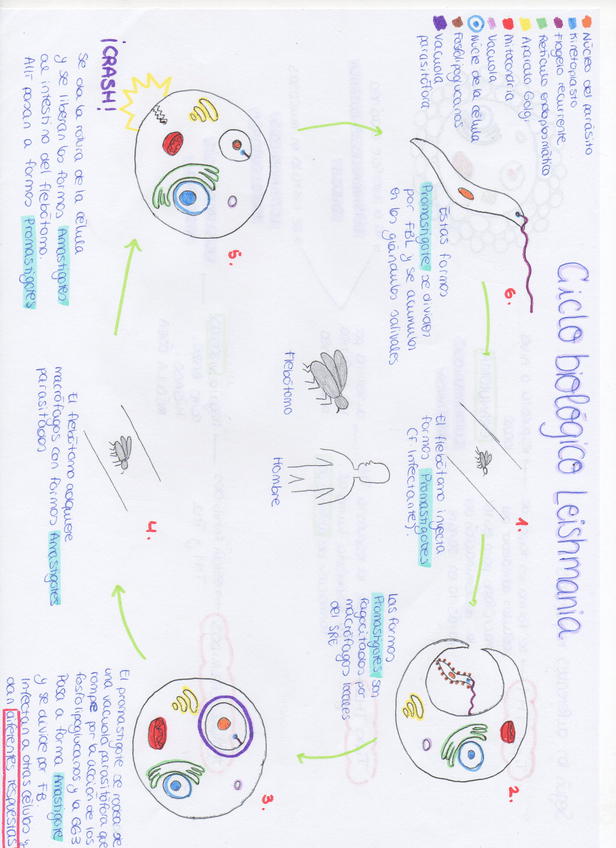 Ciclo biológico Leishmania
Núcleo del parásito
Kinetoplasto
Flagelo recurrente
Retículo endoplasmático
Aparato Golgi
Mitocondria
Vacuola
Núcleo de la célula
Fosfolipoglucanos
Vacuola
parasitófora
1.
El flebótomo inyecta
formas Promastigotes
(F. Infectante).
2.
Las formas
Promastigotes son
fagocitados por
macrófagos locales
del SRE
3.
El promastigote se rodea de
una vacuola parasitófora que
rompe por la acción de los
fosfolipoglucanos y la GG3
Pasa a forma Amastigote
y se divide por FB
Infectan a otras células y
dan diferentes respuestas
4.
El flebótomo adquiere
macrófagos con formas Amastigotes
parasitados
5.
¡CRASH!
Se da la rotura de la célula
y se liberan las formas Amastigotes
al intestino del flebótomo.
Allí pasan a formas Promastigotes
6.
Estas formas
Promastigote se dividen
por FBL y se acumulan
en las glándulas salivales
Flebótomo
Hombre